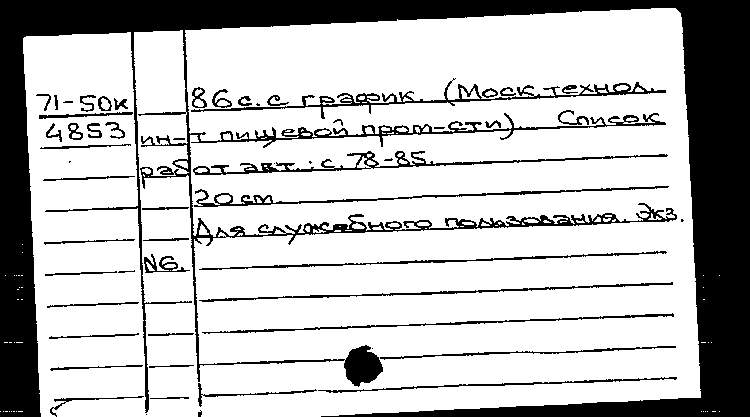 71-50к 86 с. с график. (Моск. технол.
4853 ин-т пищевой пром-сти) Список
работ авт.: с. 78-85.
20 см.
Для служебного пользования. Экз.
N6.